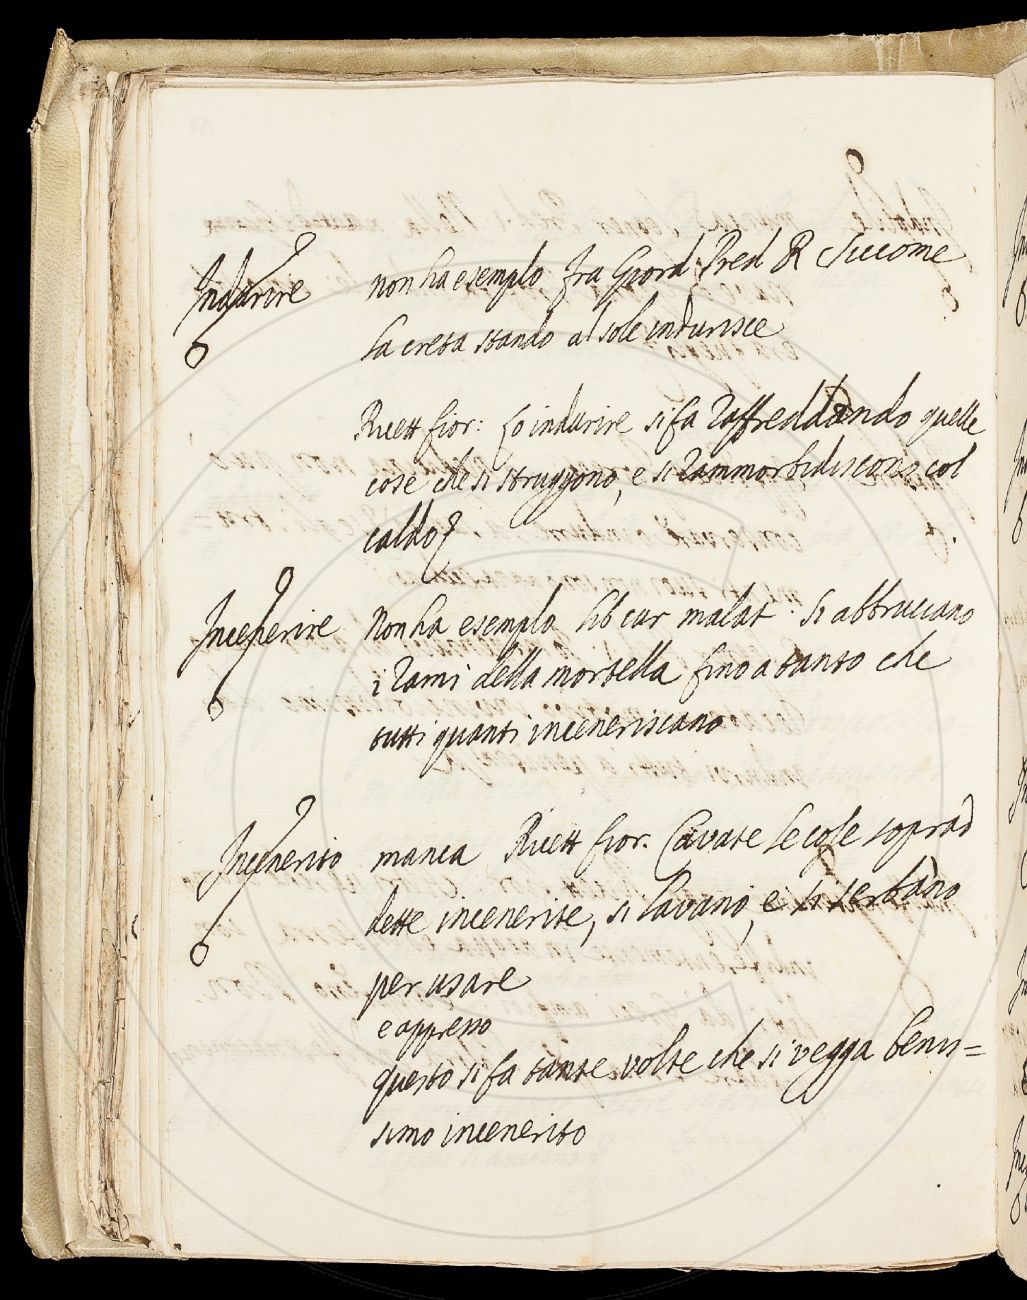 Indurire non ha esemplo fra Giord Pred R Siccome
la creta stando al sole indurisce
Ricett fior: Lo indurire si fa raffreddando quelle
cose che si struggono, e si rammorbidiscono col
caldo
Incenerire Non ha esemplo lib cur malat. Si abbruciano
i rami della mortella fino a tanto che
tutti quanti inceneriscano
Incenerito manca Ricett fior. Cavate le cose soprad
dette incenerite, si lavano, e si serbano
per usare
e appresso
questo si fa tante volte che si vegga benis=
simo incenerito